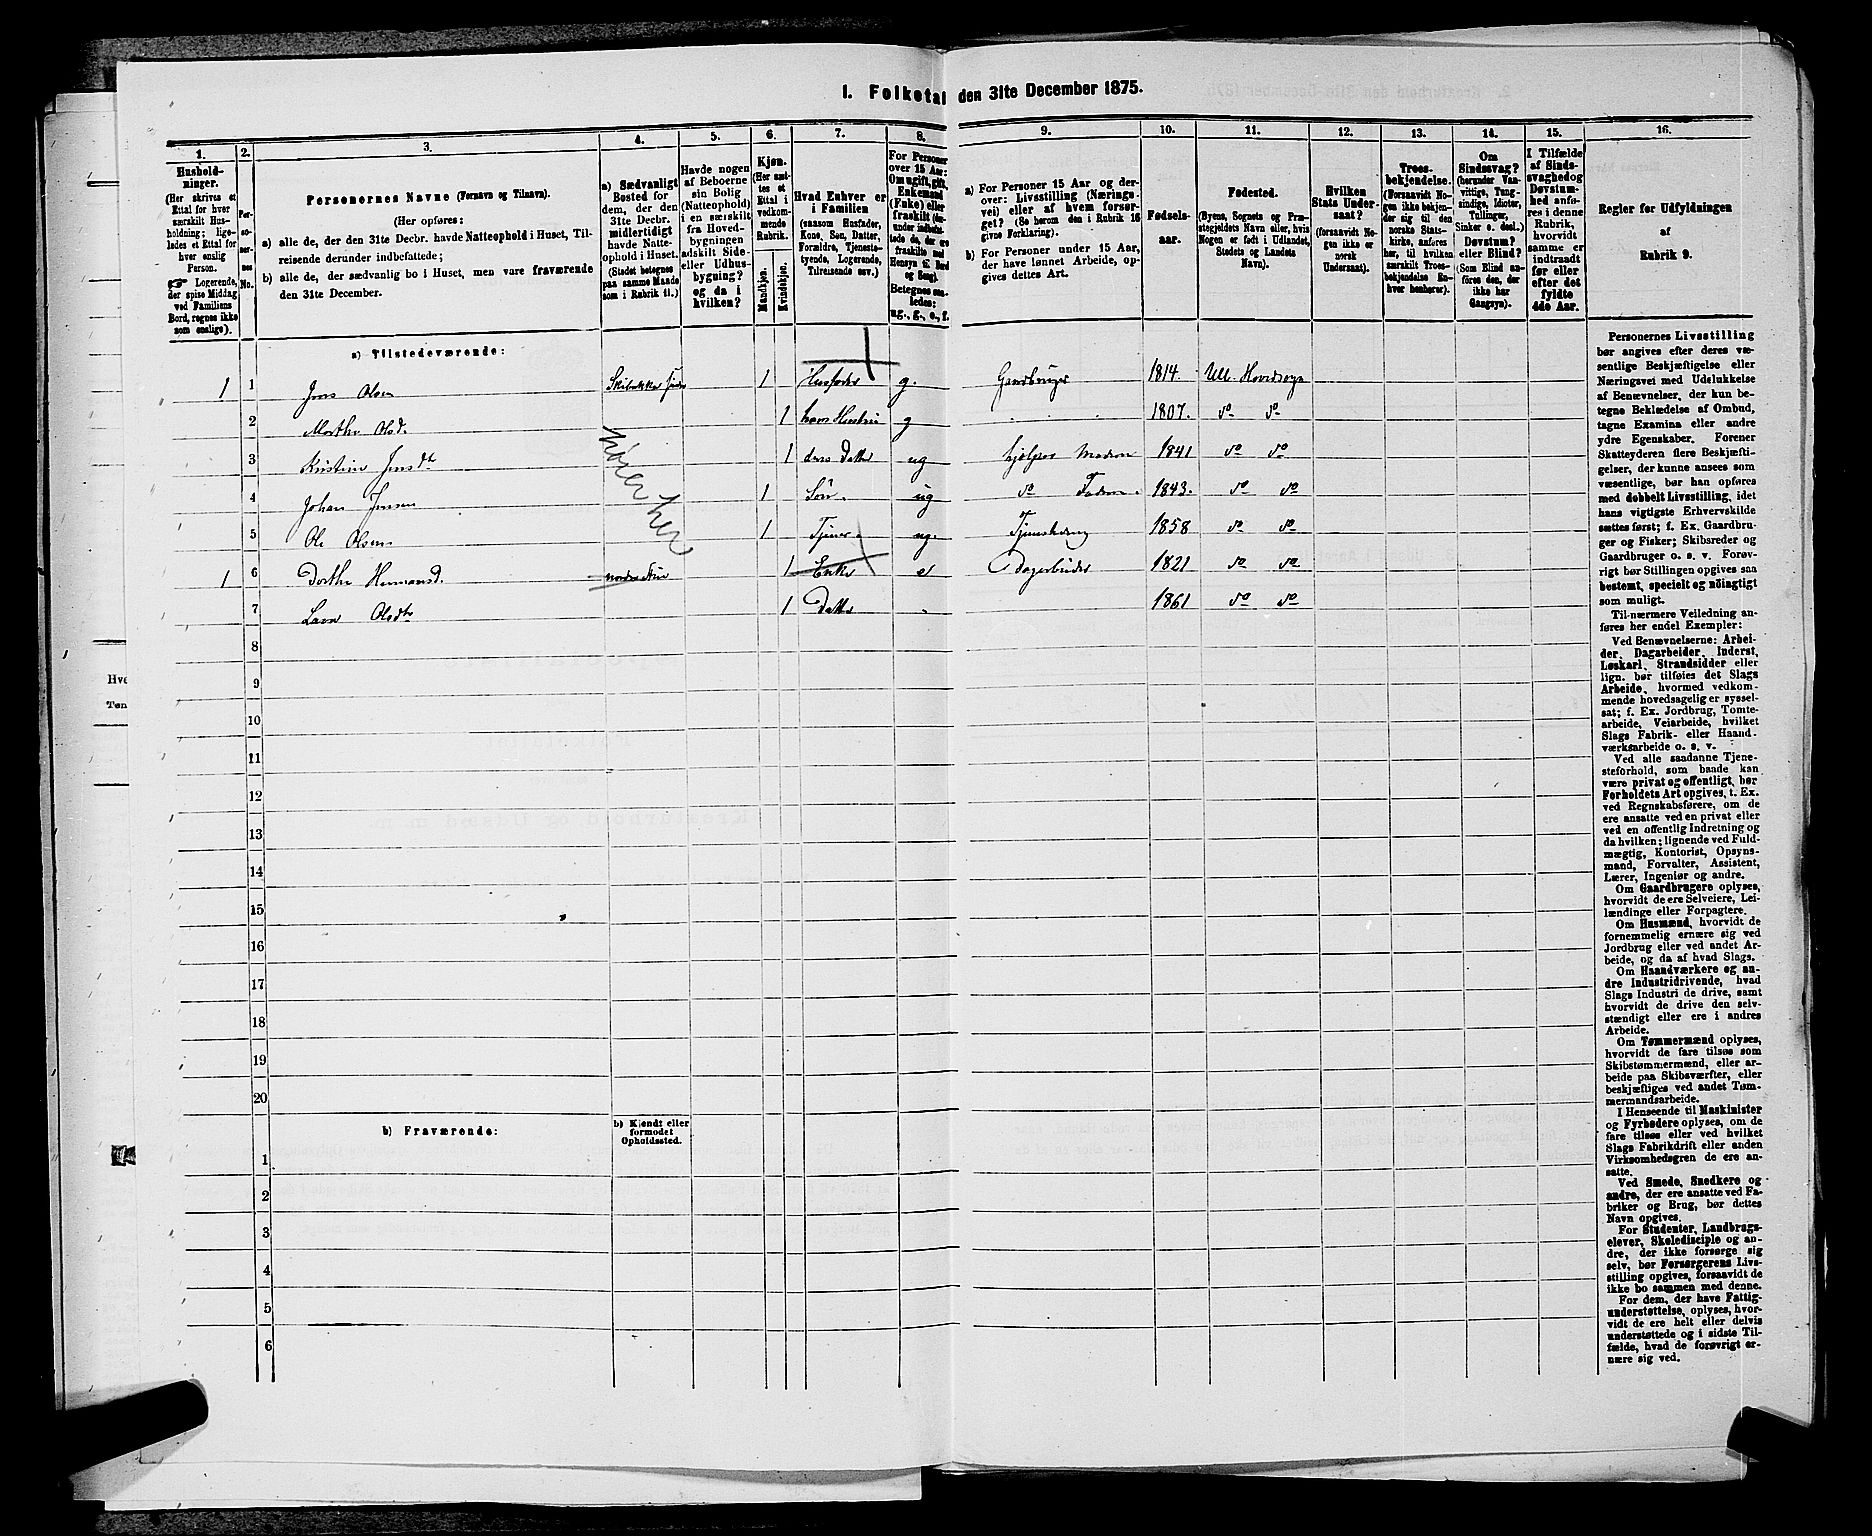 1. Folketal den 31te December 1875.
1. 2. 3. 4. 5. 6. 7. 8. 9. 10. 11. 12. 13. 14. 15. 16.
Hushold-
ninger.
(Her skrives et
Ettal for hver
særskilt Hus-
holdning; lige-
ledes et Ettal for
hver enslig
Person.
☞ Logerende,
der spise Middag
ved Familiens
Bord, regnes ikke
som enslige).
Per-
so-
ner-
nes
No.
Personernes Navne (Fornavn og Tilnavn).
(Her opføres:
a) alle de, der den 31te Decbr. havde Natteophold i Huset, Til-
reisende derunder indbefattede;
b) alle de, der sædvanlig bo i Huset, men vare fraværende
den 31te December.
a) Sædvanligt
Bosted for
dem, der den
31te Decbr.
midlertidigt
havde Natte-
ophold i Huset.
(Stedet betegnes
paa samme Maade
som i Rubrik 11.)
Havde nogen
af Beboerne
sin Bolig
(Natteophold)
i en særskilt
fra Hoved-
bygningen
adskilt Side-
eller Udhus-
bygning?
og da i
hvilken?
Kjøn.
(Her sæt-
tes et
Ettal i
vedkom-
mende
Rubrik.
Mandkjøn.
Kvindekjøn.
Hvad Enhver er
i Familien
(saasom Husfader,
Kone, Søn, Datter,
Forældre, Tjeneste-
tyende, Logerende,
Tilreisende osv.)
For Personer
over 15 Aar:
Om ugift, gift,
Enkemand
(Enke) eller
fraskilt (her-
under indbefat-
tede de, der ere
fraskilte med
Hensyn til Bord
og Seng).
Betegnes saa-
ledes:
ug., g., e., f.
a) For Personer 15 Aar og der-
over: Livsstilling (Nærings-
vei) eller af hvem forsør-
get? (Se herom den i Rubrik 16
givne Forklaring).
b) For Personer under 15 Aar,
der have lønnet Arbeide, op-
gives dettes Art.
Fødsels-
aar.
Fødested.
(Byens, Sognets og Præ-
stegjeldets Navn eller, hvis
Nogen er født i Udlandet,
Stedets og Landets
Navn).
Hvilken
Stats Under-
saat?
(forsaavidt No-
gen ikke er
norsk
Undersaat).
Troes-
bekjendelse.
(Forsaavidt No-
gen ikke bekjen-
der sig til den
norske Stats-
kirke, anføres
her, til hvilken
særskilt Troes-
bekjendelse En-
hver henhører).
Om
Sindssvag?
(herunder Van-
vittige, Tung-
sindige, Idioter,
Tullinger,
Sinker o. desl.)
Døvstum?
eller Blind?
(Som Blind an-
føres den, der
ikke har
Gangsyn).
I Tilfælde
af Sinds-
svaghed og
Døvstum-
hed anfø-
res i denne
Rubrik,
hvorvidt
samme er
indtraadt
før eller
efter det
fyldte
4de Aar.
Regler før Udfyldningen
af
Rubrik 9.
a) Tilstedeværende:
1 1 Jens Olsen 1 Husfader g. Gaardbruger 1814. Ull. Hovedsogn
2 Marthe Olsd. 1 hans Hustru g 1807. do do
3 Kristine Jensdt 1 deres Datter ug hjelper Moderen 1841 do do
4 Johan Jensen 1 Søn ug do Faderen 1843. do do
hører her
5 Ole Olsen 1 Tjener ug. 1858 do do
1 6 Dorthe Hermansd. 1 Enke e 1821 do do
7 Olsdtr 1 Datter 1861 do do
8
9
10
11
12
13
14
15
16
17
18
19
20
b) Fraværende:
b) Kjendt eller
formodet
Opholdssted.
1
2
3
4
5
6
Personernes Livsstilling
bør angives efter deres væ-
sentlige Beskjæftigelse eller
Næringsvei med Udelukkelse
af Benævnelser, der kun be-
tegne Beklædelse af Ombud,
tagne Examina eller andre
ydre Egenskaber. Forener
Skatteyderen flere Beskjæfti-
gelser, der kunne ansees som
væsentlige, bør han opføres
med dobbelt Livsstilling, idet
hans vigtigste Erhvervskilde
sættes først; f. Ex. Gaardbru-
ger og Fisker; Skibsreder og
Gaardbruger o. s. v. Forøv-
rigt bør Stillingen opgives saa
bestemt, specielt og nöiagtigt
som muligt.
Til nærmere Veiledning an-
føres her endel Exempler:
Ved Benævnelserne: Arbei-
der, Dagarbeider, Inderst,
Løskarl, Strandsidder eller
lign. bør tilføies det Slags
Arbeide, hvormed vedkom-
mende hovedsagelig er syssel-
sat; f. Ex. Jordbrug, Tomte-
arbeide, Veiarbeide, hvilket
Slags Fabrik- eller Haand-
værksarbeide o. s. v.
Ved alle saadanne Tjene-
steforhold, som baade kan
være privat og offentligt, bør
Forholdets Art opgives, f. Ex.
ved Regnskabsførere, om de
ere ansatte ved en privat eller
ved en offentlig Indretning og
da hvilken; lignende ved Fuld-
mægtig, Kontorist, Opsyns-
mand, Forvalter, Assistent,
Lærer, Ingeniør og andre.
Om Gaardbrugere oplyses,
hvorvidt de ere Selveiere, Lei-
lændinge eller Forpagtere.
Om Husmænd, hvorvidt de
fornemmelig ernære sig ved
Jordbrug eller ved andet Ar-
beide, og da af hvad Slags.
Om Haandværkere og an-
dre Industridrivende, hvad
Slags Industri de drive, samt
hvorvidt de drive den selv-
stændigt eller ere i andres
Arbeide.
Om Tømmermænd oplyses,
hvorvidt de fare tilsøs som
Skibstømmermænd, eller ar-
beide paa Skibsværfter, eller
beskjæftiges ved andet Tøm-
mermandsarbeide.
I Henseende til Maskinister
og Fyrbødere oplyses, om de
fare tilsøs eller ved hvilket
Slags Fabrikdrift eller anden
Virksomhedsgren de ere an-
satte.
Ved Smede, Snedkere og
andre, der ere ansatte ved Fa-
briker og Brug, bør dettes
Navn opgives.
For Studenter, Landbrugs-
elever, Skoledisciple og an-
dre, der ikke forsørge sig
selv, bør Forsørgerens Livs-
stilling opgives, forsaavidt de
ikke bo sammen med denne.
For dem, der have Fattig-
understøttelse, oplyses, hvor-
vidt de ere helt eller delvis
understøttede og i sidste Til-
fælde, hvad de forøvrigt er-
nære sig ved.